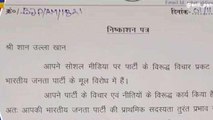 निष्कासन पत्र
श्री शान उल्ला खान
आपने सोशल मीडिया पर पार्टी के विरूद्ध विचार प्रकट
भारतीय जनता पार्टी के मूल विरोध में हैं।
आपने पार्टी के विचार एवं नीतियों के विरूद्ध कार्य किया है
अतः आपकी भारतीय जनता पार्टी की प्राथमिक सदस्यता तुरत प्रभाव